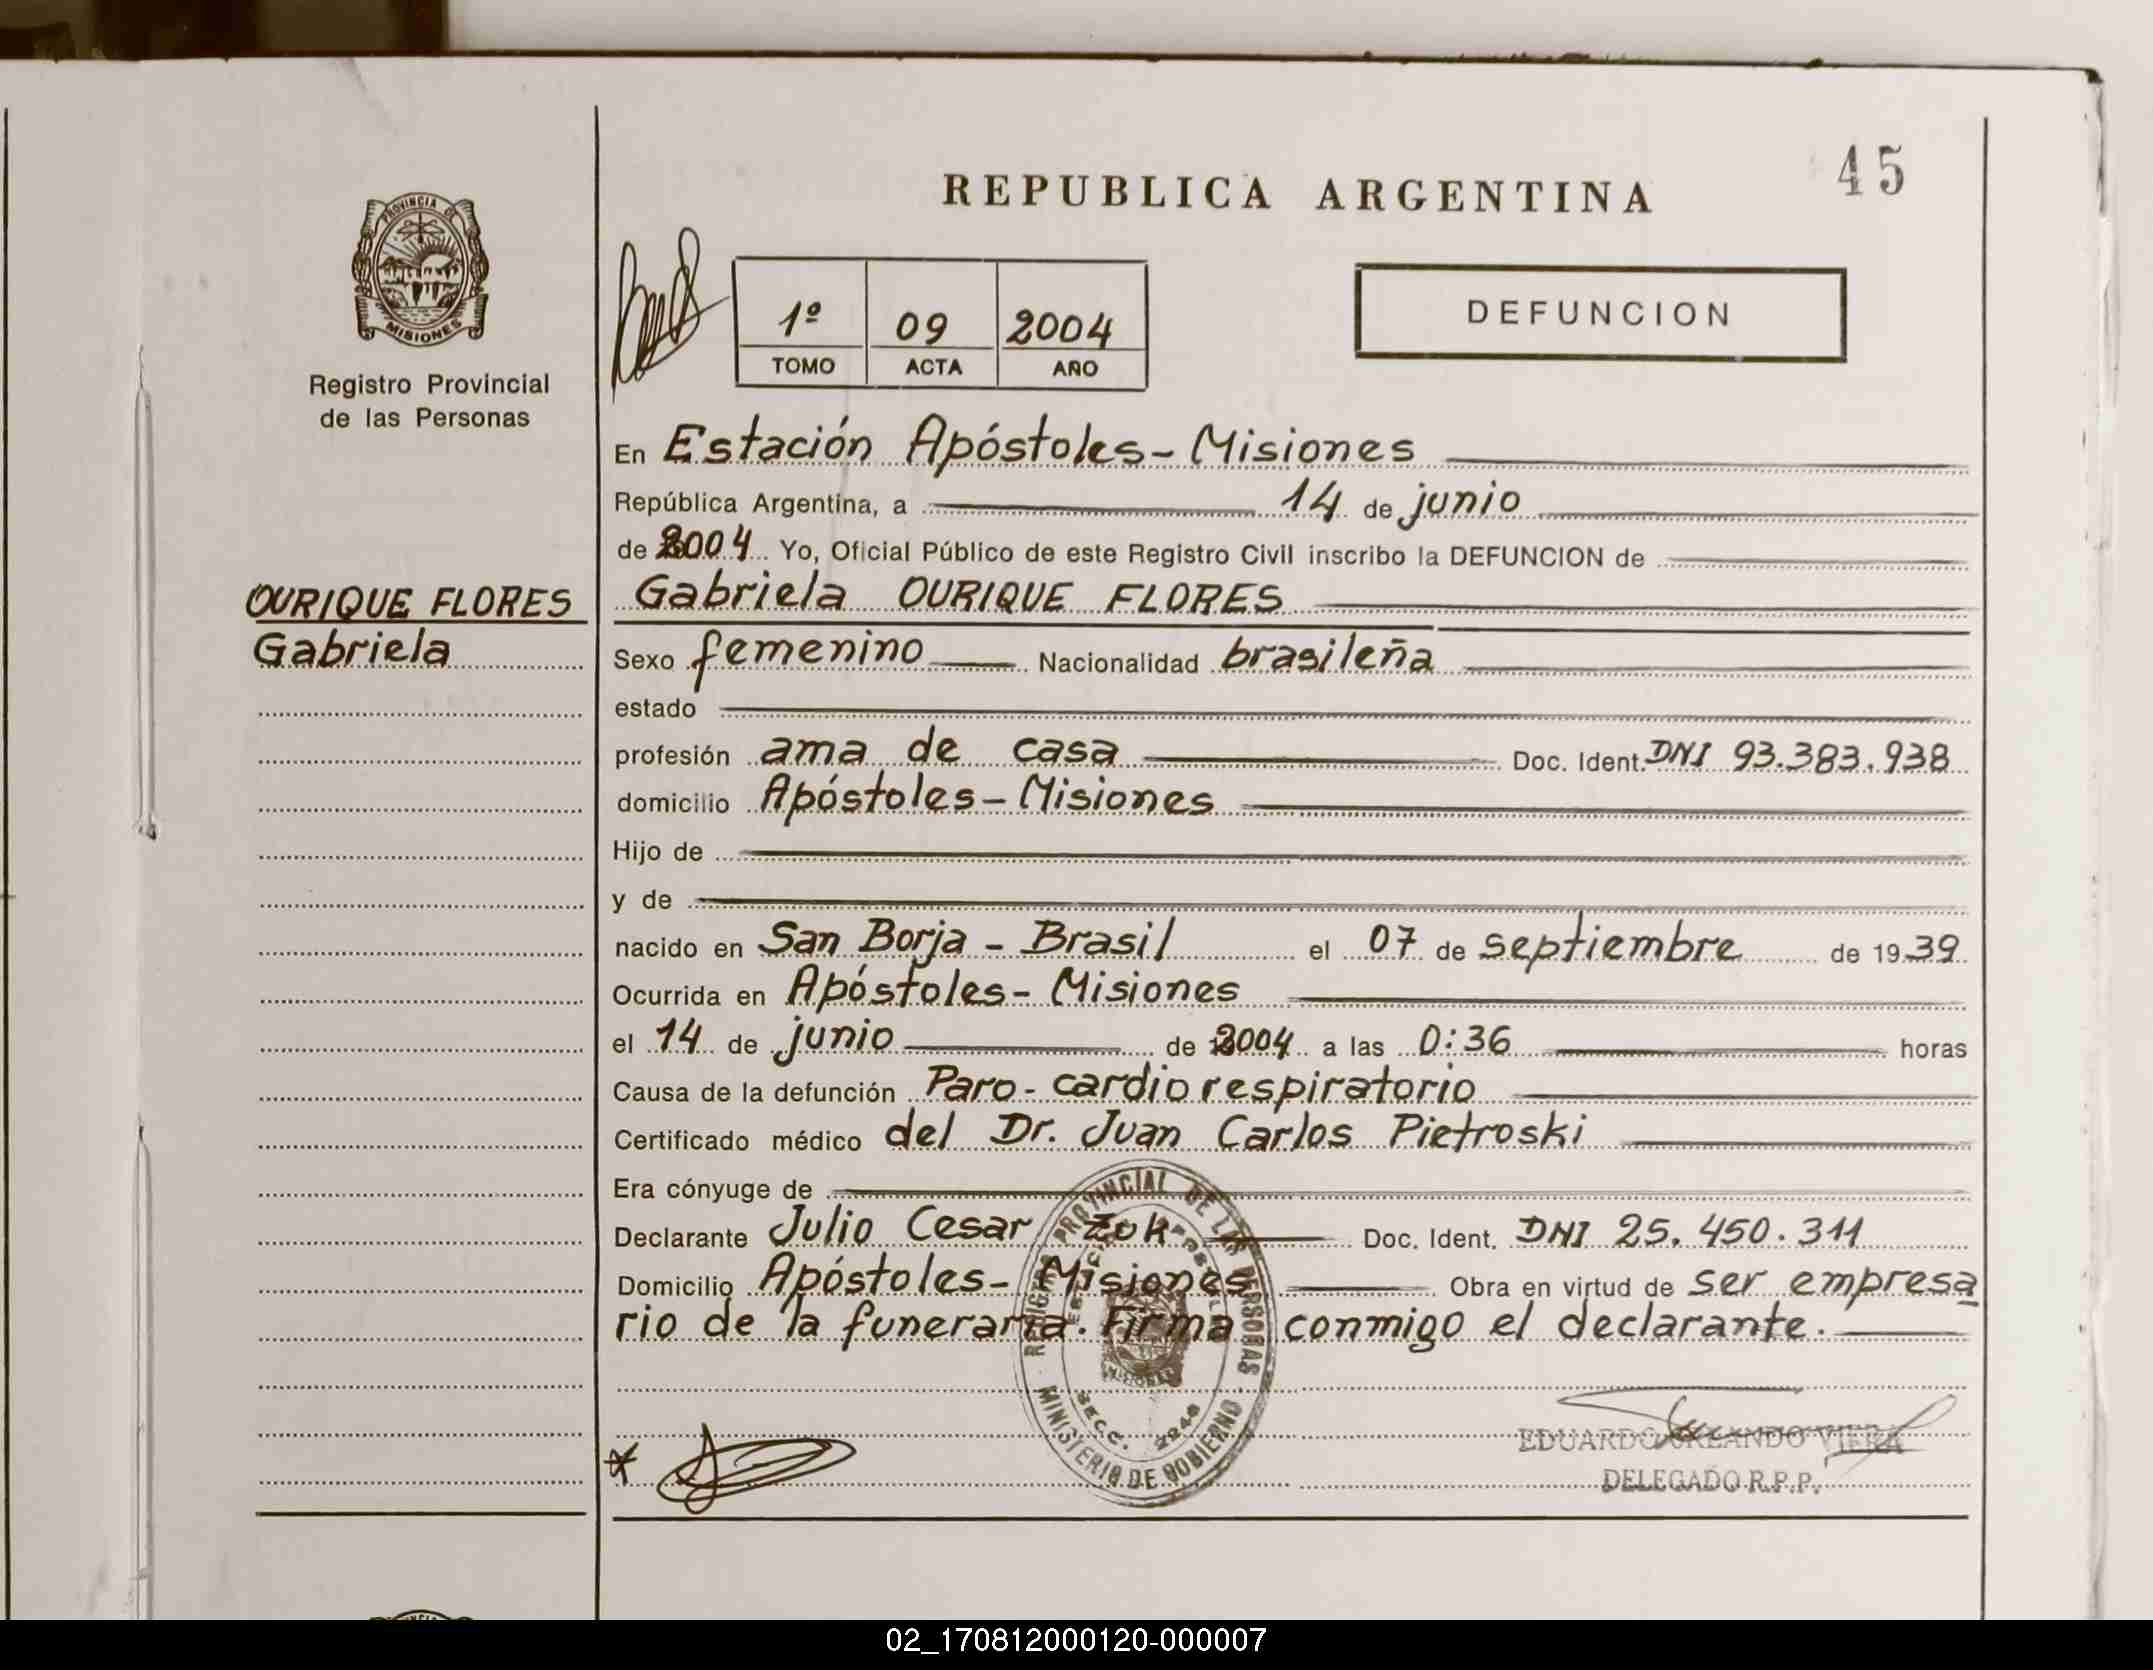 45
REPUBLICA ARGENTINA
PROVINCIA DE
MISIONES
Registro Provincial
de las Personas
1º 09 2004
TOMO ACTA AÑO
DEFUNCION
En Estación Apóstoles - Misiones
República Argentina, a 14 de junio
de 2004 Yo, Oficial Público de este Registro Civil inscribo la DEFUNCION de
OURIQUE FLORES
Gabriela
Gabriela OURIQUE FLORES
Sexo femenino Nacionalidad brasileña
estado
profesión ama de casa Doc. Ident. DNI 93.383.938
domicilio Apóstoles - Misiones
Hijo de
y de
nacido en San Borja - Brasil el 07 de septiembre de 1939
Ocurrida en Apóstoles - Misiones
el 14 de junio de 2004 a las 0:36 horas
Causa de la defunción Paro - cardiorespiratorio
Certificado médico del Dr. Juan Carlos Pietroski
Era cónyuge de
Declarante Julio Cesar Zuk Doc. Ident. DNI 25.450.311
Domicilio Apóstoles - Misiones Obra en virtud de ser empresa
rio de la funeraria. Firma conmigo el declarante.
REGISTRO PROVINCIAL DE LAS PERSONAS
MINISTERIO DE GOBIERNO
SECC.
EDUARDO ORLANDO VIERA
DELEGADO R.P.P.
02_170812000120-000007